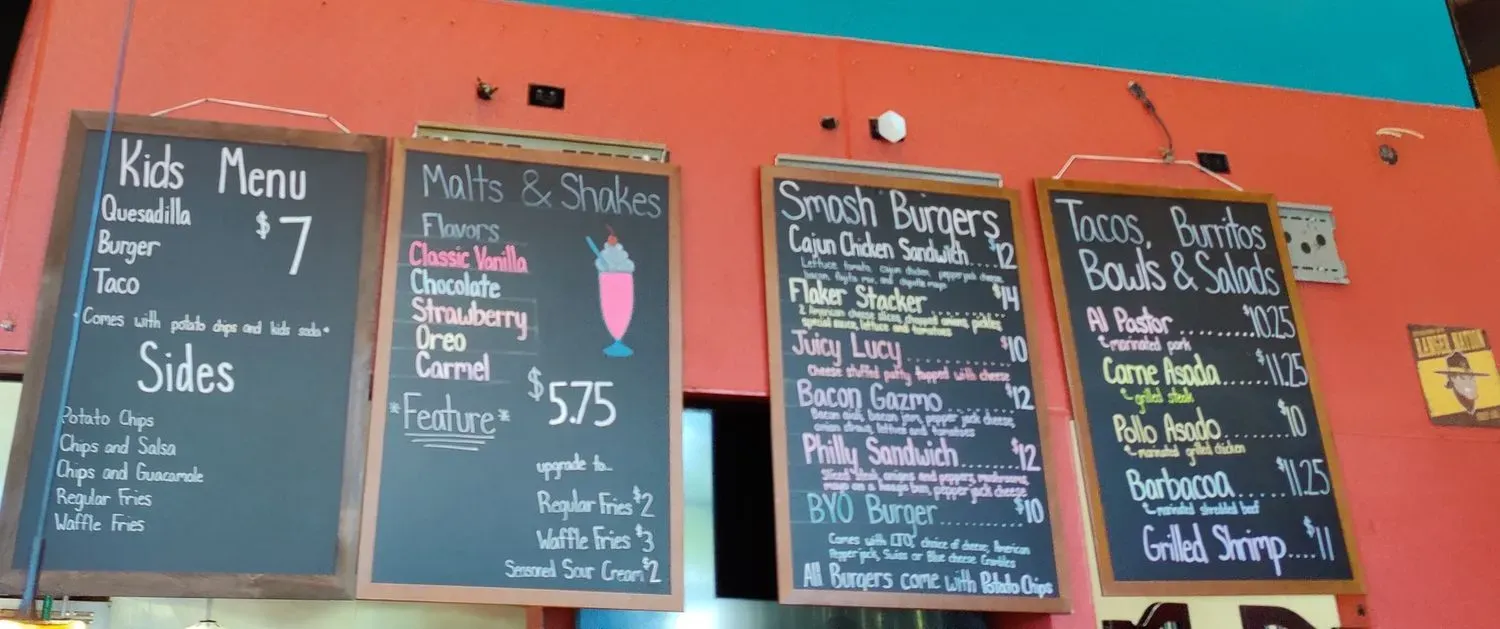 Kids Menu
Quesadilla
$7
Burger
Taco
Comes with potato chips and kids soda*
Sides
Potato Chips
Chips and Salsa
Chips and Guacamole
Regular Fries
Waffle Fries
Malts & Shakes
Flavors
Classic Vanilla
Chocolate
Strawberry
Oreo
Carmel
$5.75
*Feature*
upgrade to...
Regular Fries $2
Waffle Fries $3
Seasoned Sour Cream $2
Smash Burgers
Cajun Chicken Sandwich...$12
Lettuce, tomato, cajun chicken, pepperjack cheese,
bacon, fajita mix, and chipotle mayo
Flaker Stacker $14
2 American cheese slices, chopped onions, pickles,
special sauce, lettuce and tomatoes
Juicy Lucy ............ $10
Cheese stuffed patty topped with cheese
Bacon Gazmo ........ $12
Bacon aioli, bacon jam, pepper jack cheese,
onion straws, lettuce and tomatoes
Philly Sandwich....... $12
Sliced steak, onions and peppers, mushrooms,
mayo on a hoagie bun, pepper jack cheese
BYO Burger.......... $10
Comes with LTO, choice of cheese; American
Pepperjack, Swiss or Blue cheese
All Burgers come with Potato Chips
Tacos, Burritos
Bowls & Salads
Al Pastor ........$10.25
marinated pork
Carne Asada......$11.25
grilled steak
Pollo Asado........$10
marinated grilled chicken
Barbacoa ......$11.25
marinated shredded beef
Grilled Shrimp....$11
RANGER NATION